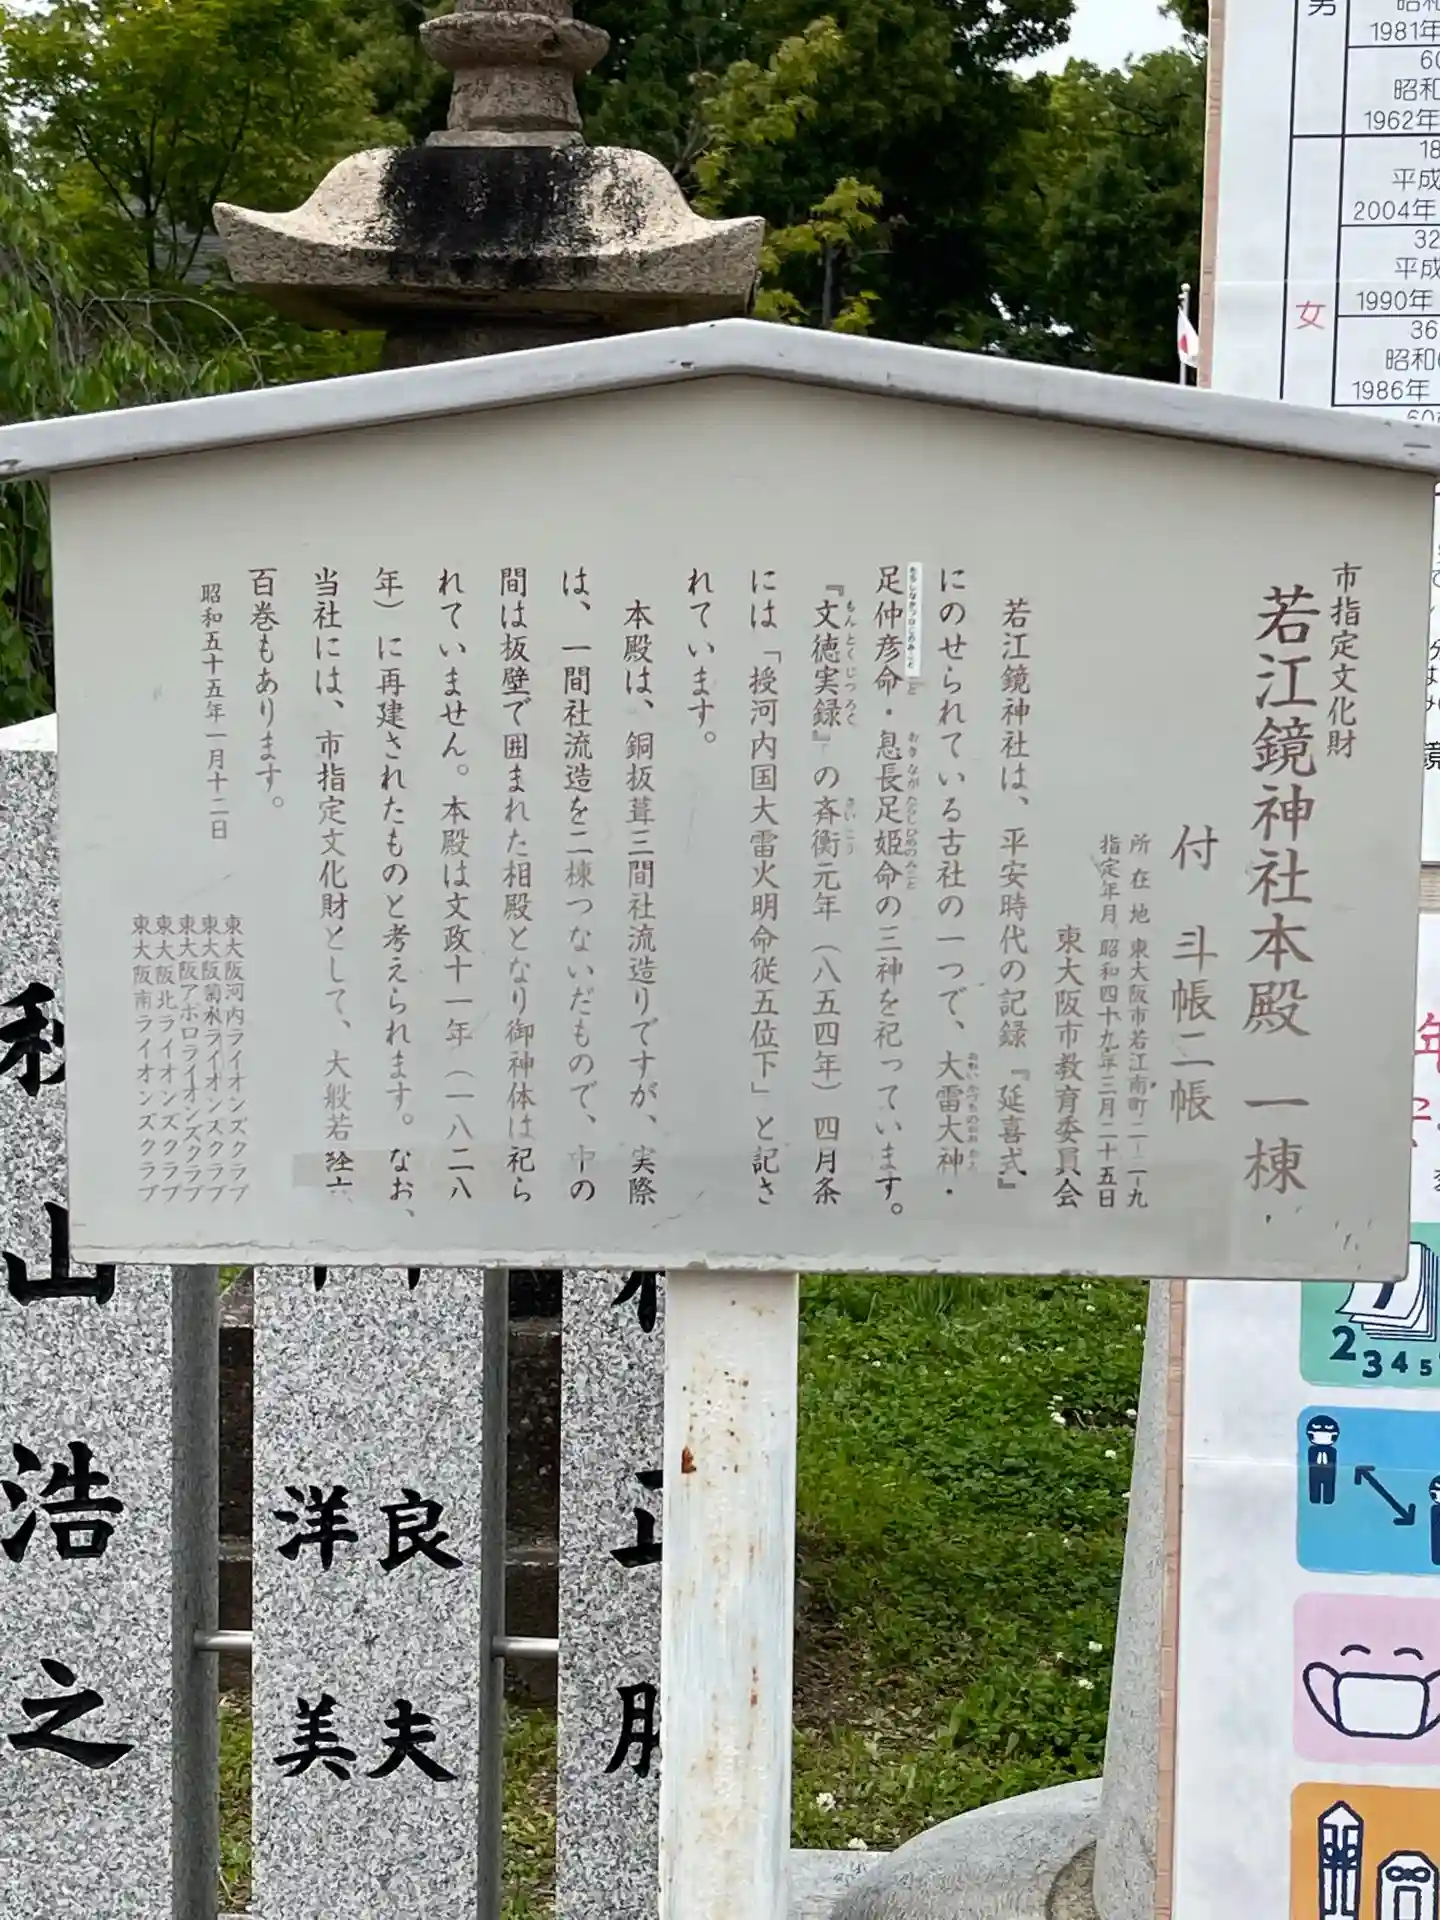 市指定文化財
若江鏡神社本殿 一棟
付 斗帳二帳
所在地 東大阪市若江南町二-二-九
指定年月 昭和四十九年三月二十五日
東大阪市教育委員会
若江鏡神社は、平安時代の記録『延喜式』
にのせられている古社の一つで、大雷大神・
足仲彦命・息長足姫命の三神を祀っています。
『文徳実録』の斉衡元年（八五四年）四月条
には「授河内国大雷火明命従五位下」と記さ
れています。
本殿は、銅板葺三間社流造りですが、実際
は、一間社流造を二棟つないだもので、中の
間は板壁で囲まれた相殿となり御神体は祀ら
れていません。本殿は文政十一年（一八二八
年）に再建されたものと考えられます。なお、
当社には、市指定文化財として、大般若経六
百巻もあります。
昭和五十五年一月十二日
東大阪河内ライオンズクラブ
東大阪菊水ライオンズクラブ
東大阪アポロライオンズクラブ
東大阪北ライオンズクラブ
東大阪南ライオンズクラブ
男
1981年
昭和
1962年
平成
2004年
平成
女
1990年
昭和
1986年
2 3 4 5
良夫
洋美
山浩之